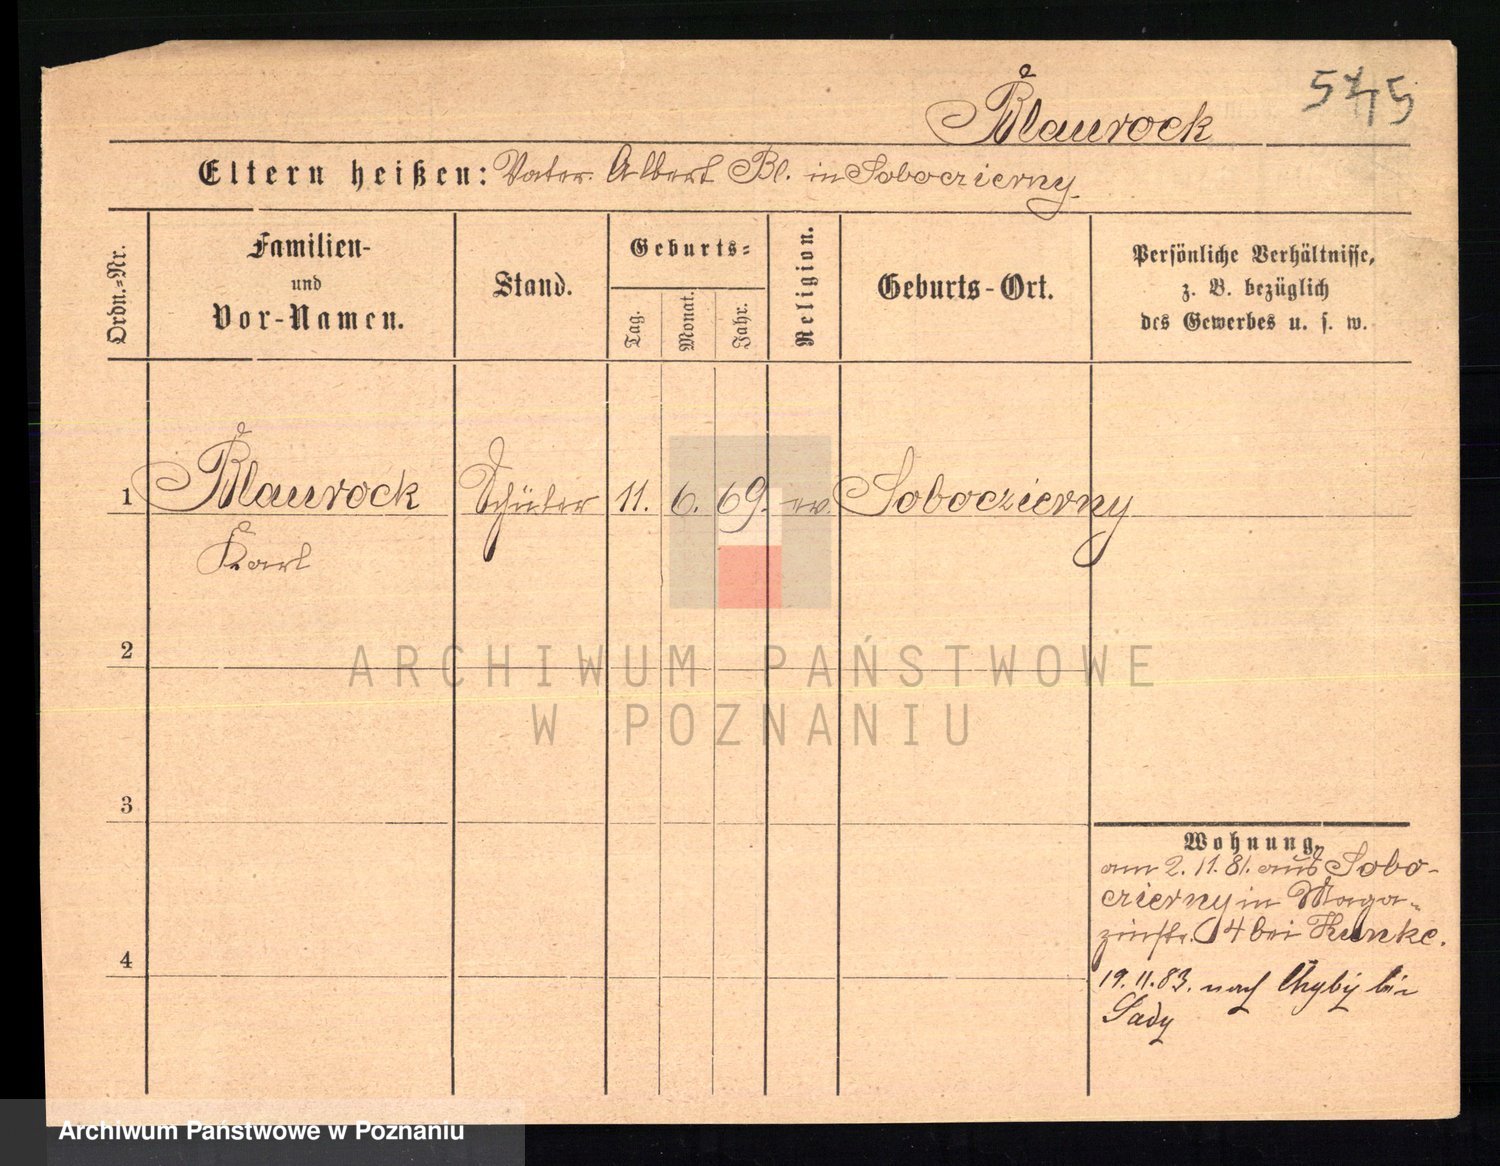 5745
Blaurock
Eltern heißen: Vater. Albert Bl. in Soboczierny.
Ordn.-Nr.
Familien-
und
Vor-Namen.
Stand.
Geburts-
Tag.
Monat.
Jahr.
Religion.
Geburts-Ort.
Persönliche Verhältnisse,
z. B. bezüglich
des Gewerbes u. s. w.
1 Blaurock Schüler 11. 6. 69. ev. Soboczierny
Karl
2
ARCHIWUM PAŃSTWOWE
W POZNANIU
3
Wohnung.
am 2. 11. 81. aus Sobo-
czierny in Maga-
zinstr. 4 bei Kunke.
4
19. 11. 83. nach Chyby bei
Sady
Archiwum Państwowe w Poznaniu